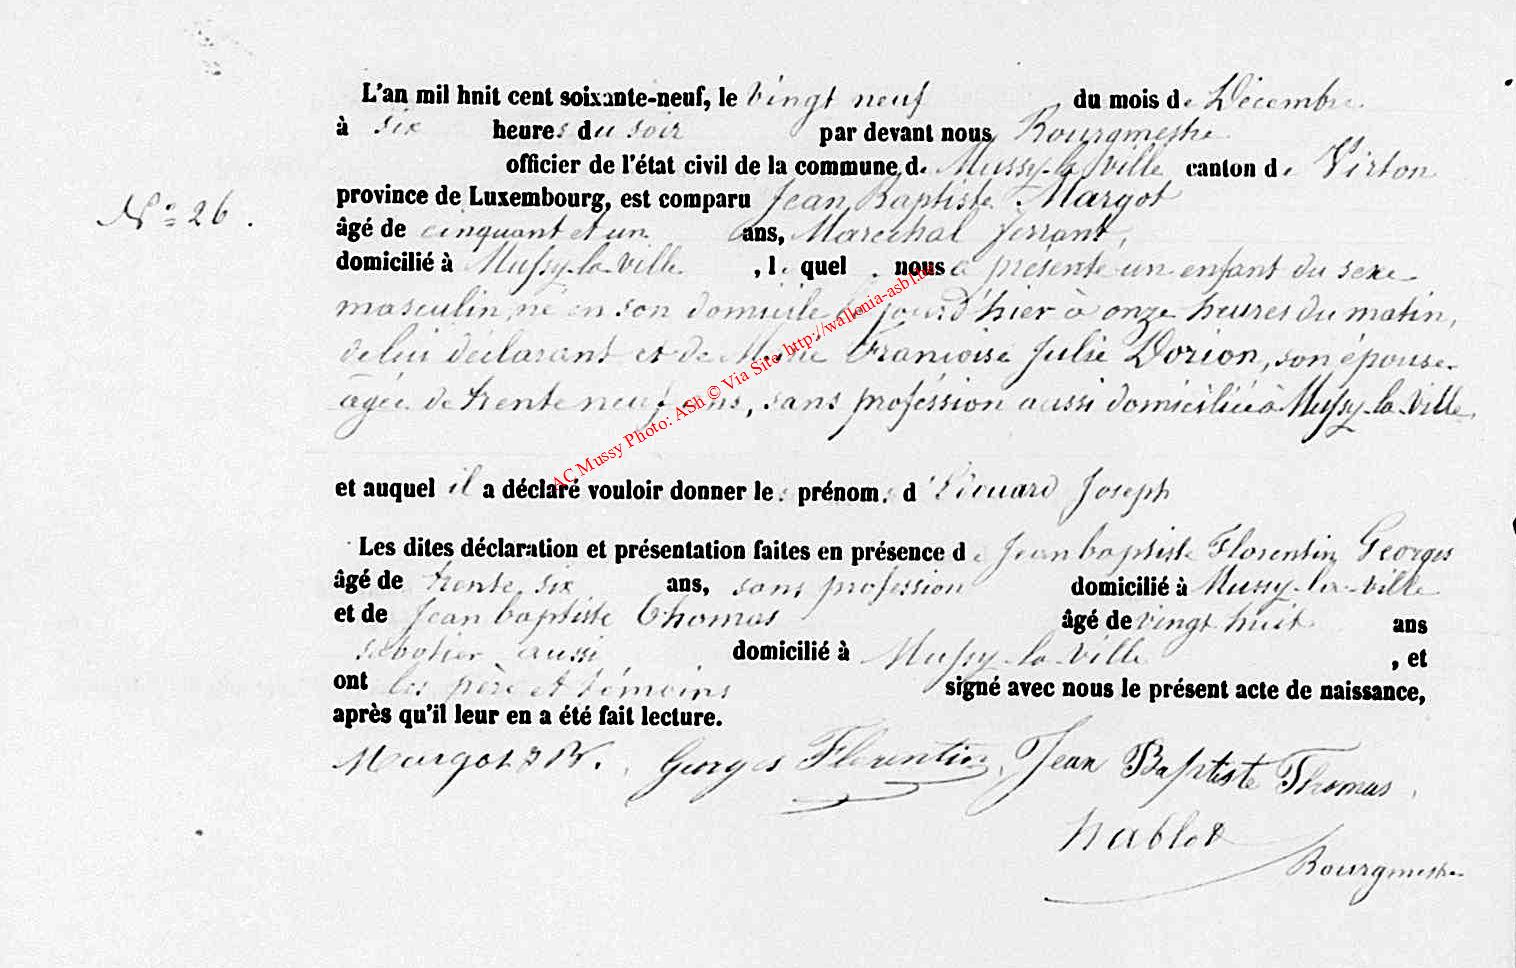 L'an mil hnit cent soixante-neuf, le vingt neuf du mois de Décembre
à six heures du soir par devant nous Bourgmestre
officier de l'état civil de la commune de Mussy-la-Ville canton de Virton
province de Luxembourg, est comparu Jean Baptiste Margot
N° 26.
âgé de cinquant et un ans, Maréchal ferrant,
domicilié à Mussy-la-Ville, le quel nous a présenté un enfant du sexe
masculin, né en son domicile jourd'hier à onze heures du matin,
de lui déclarant et de Marie Françoise Julie Dorion, son épouse
âgée de trente neuf ans, sans profession aussi domiciliée à Mussy-la-Ville
et auquel il a déclaré vouloir donner les prénoms d'Edouard Joseph
Les dites déclaration et présentation faites en présence de Jean baptiste Florentin Georges
âgé de trente six ans, sans profession domicilié à Mussy-la-Ville
et de Jean baptiste Thomas âgé de vingt huit ans
sabotier aussi domicilié à Mussy-la-Ville, et
ont les père et témoins signé avec nous le présent acte de naissance,
après qu'il leur en a été fait lecture.
Margot JB. Georges Florentin, Jean Baptiste Thomas
hablot
Bourgmestre
AC Mussy Photo: ASh © Via Site http://wallonia-asbl.be